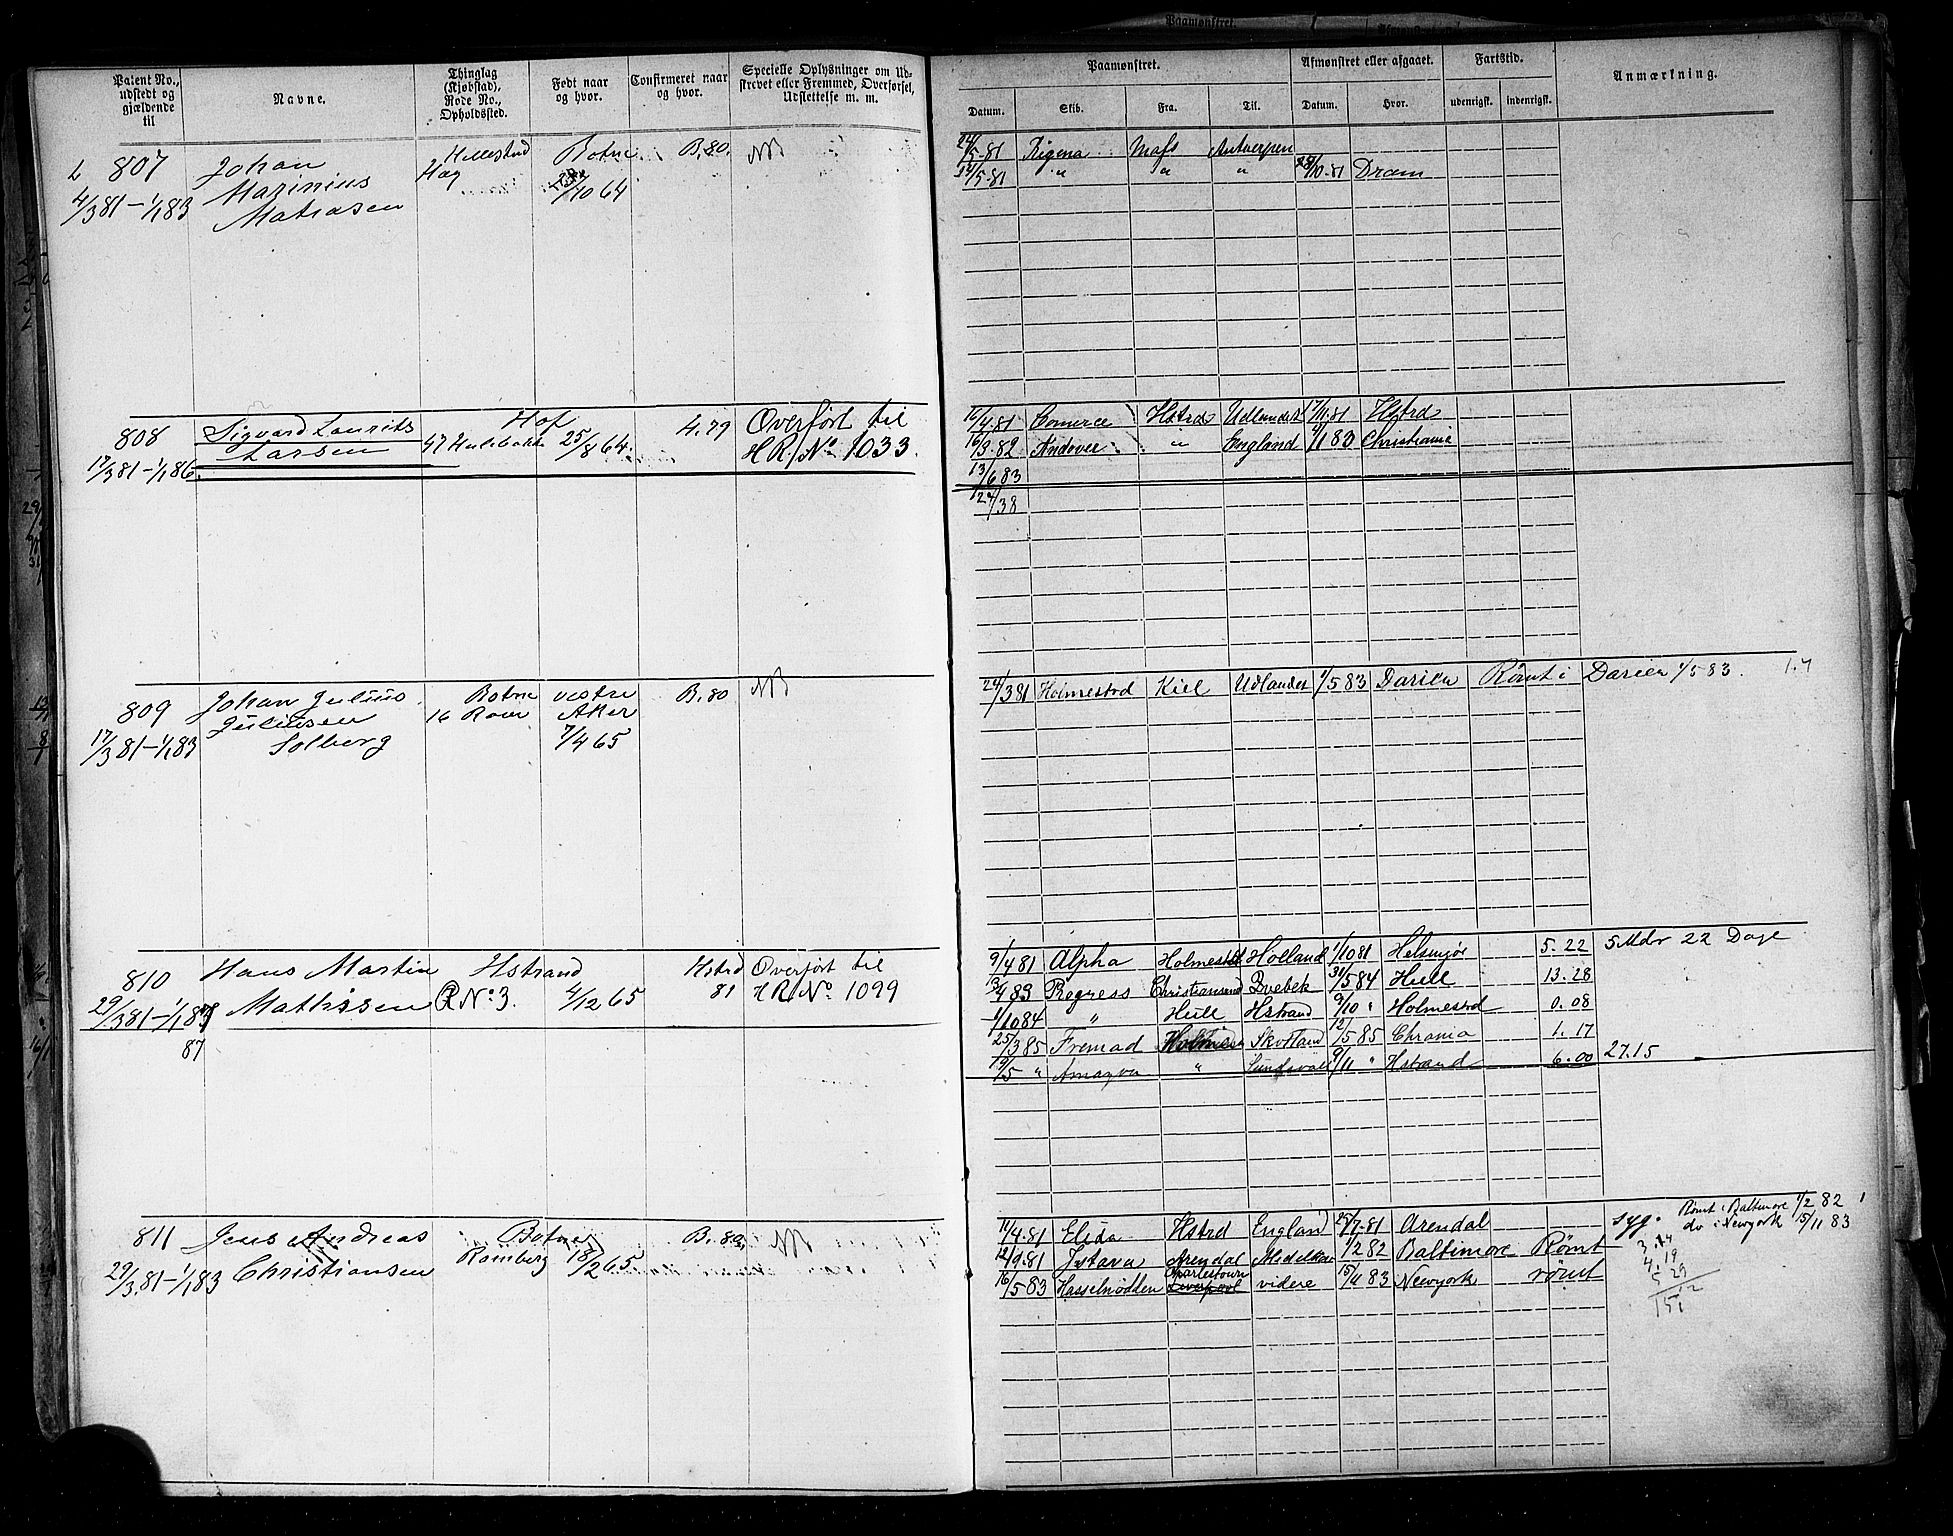 Patent No., udstedt og gjældende til
Navne.
Thinglag (Kjøbstad), Rode No., Opholdssted.
Født naar og hvor.
Confirmeret naar og hvor.
Specielle Oplysninger om Udskrevet eller Fremmed, Overførsel, Udslettelse m. m.
Paamønstret.
Afmønstret eller afgaaet.
Fartstid.
Anmærkning.
Datum. Skib. Fra. Til. Datum. Hvor. udenrigsk. indenrigsk.
807 Johan Hillestad Botne B. 80. NB
Marinius Hag /10 64
4/3 81 – 1/1 83
24/5-81 Rigena Mafs Antverpen
/5-81 " " " 28/10-81 Dram
808 Sigvard Laurits Hof 4.79 Overført til
Larsen 47 25/8 64. H.R. No 1033.
17/3 81 – 1/1 86.
/4.81 Comerce Hstrd Udlandet 17/11.81 Hstrd
16/3.82 Andover " England /1 83 Christiania
13/6 83
/38
809 Johan Julius Botne vestre B. 80 NB
Juliussen 16 Aker
17/3 81 – 1/1 83 Solberg 7/4 65
24/3 81 Holmestrd Kiel Udlandet 1/5 83 Darien Rømt i Darien 1/5 83. 1.7
810 Hans Martin Hstrand Hstrd Overført til
Mathisen R No 3. 4/12 65 81 H.R. No. 1099
29/3 81 – 1/1 83
87
9/4 81 Alpha Holmestd Holland 1/10 81 Helsingør 5. 22 5 Mdr 22 Dage
/4 83 Regress Christiansund Dvebek 31/5 84 Hull 13. 28
1/10 84 " Hull Hstrand 9/10 " Holmestrd 0. 08
25/3 85 Fremad Skotland 12/5 85 Chrania 1. 17
19/5 " " Sundsvall 9/11 " Hstrand 6. 00 27.15
811 Jens Andreas Botne B. 80, NB
29/3.81 – 1/1 83 Christiansen Ramberg 18/2 65.
11/4.81 Elida Hstrd England 25/7-81 Arendal syg. Rømt i Baltimore 1/2 82 1
12/9.81 Arendal 1/2 82 Baltimore Rømt do i Newyork 15/11 83
Charlestown
16/5 83 Hasselnødden Liverpool videre 15/11 83 Newyork rømt
3.14
4. 19
5 29